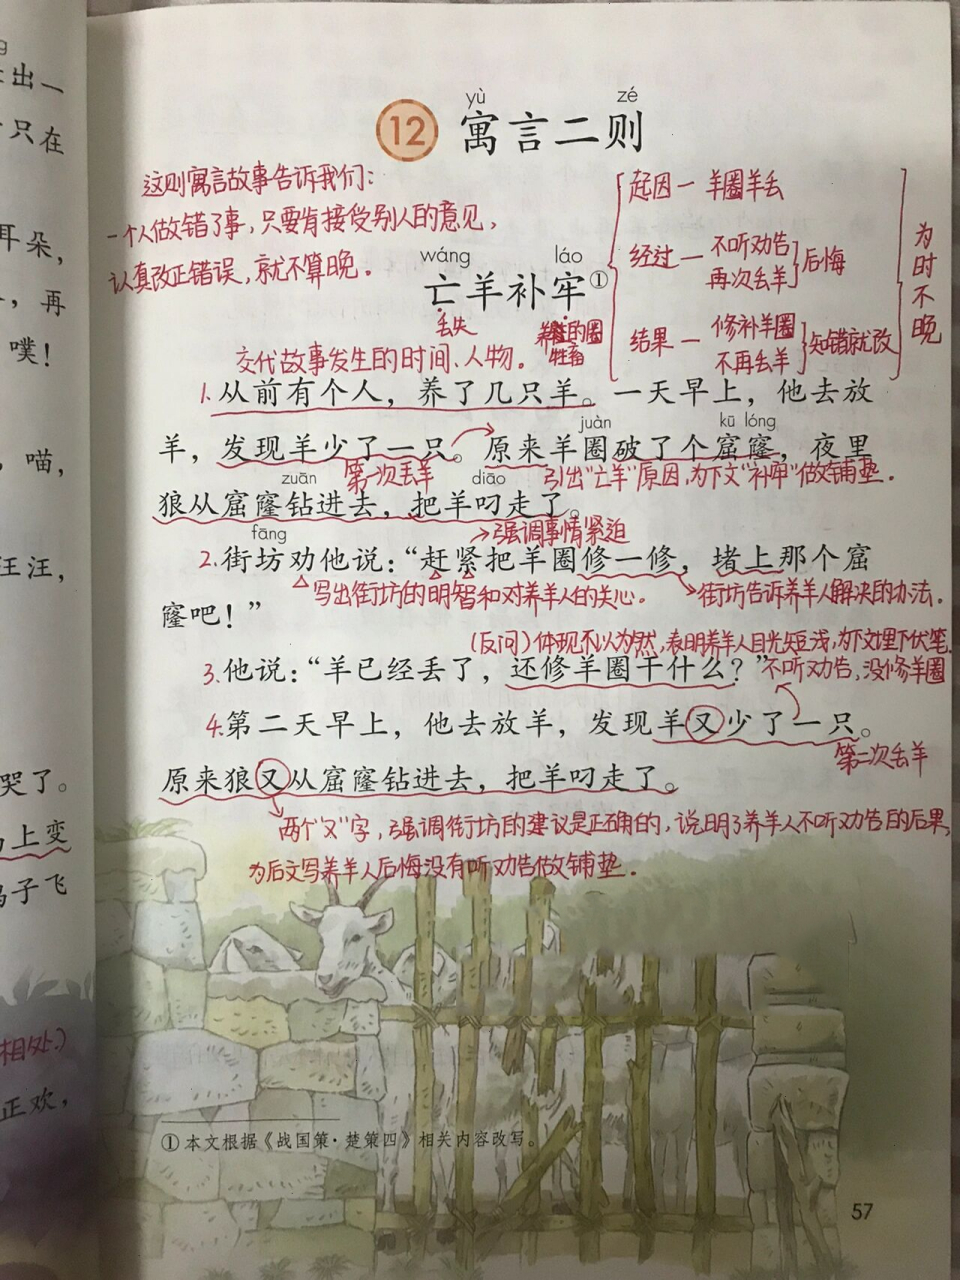 出一
只在
耳朵,
,再
噗!
,喵,
汪汪,
哭了。
上变
子飞
相处.)
正欢,
yù zé
12 寓言二则
这则寓言故事告诉我们:
一个人做错了事,只要肯接受别人的意见,
认真改正错误,就不算晚。
起因一羊圈羊丢
经过一不听劝告
再次丢羊
后悔
结果一修补羊圈
不再丢羊
知错就改
为时不晚
wáng láo
亡羊补牢①
丢失
养牲的圈
牲畜
交代故事发生的时间、人物。
1.从前有个人,养了几只羊。一天早上,他去放
juàn kū lóng
羊,发现羊少了一只。原来羊圈破了个窟窿,夜里
第一次丢羊
引出“亡羊”原因,为下文“补牢”做铺垫。
zuān diāo
狼从窟窿钻进去,把羊叼走了。
→强调事情紧迫
fāng
2.街坊劝他说:“赶紧把羊圈修一修,堵上那个窟
写出街坊的明智和对养羊人的关心。
街坊告诉养羊人解决的办法。
窿吧!”
(反问)体现不以为然,表明养羊人目光短浅,为下文埋下伏笔.
3.他说:“羊已经丢了,还修羊圈干什么?”
不听劝告,没修羊圈
4.第二天早上,他去放羊,发现羊又少了一只。
第二次丢羊
原来狼又从窟窿钻进去,把羊叼走了。
两个“又”字,强调街坊的建议是正确的,说明了养羊人不听劝告的后果,
为后文写养羊人后悔没有听劝告做铺垫.
①本文根据《战国策·楚策四》相关内容改写。
57